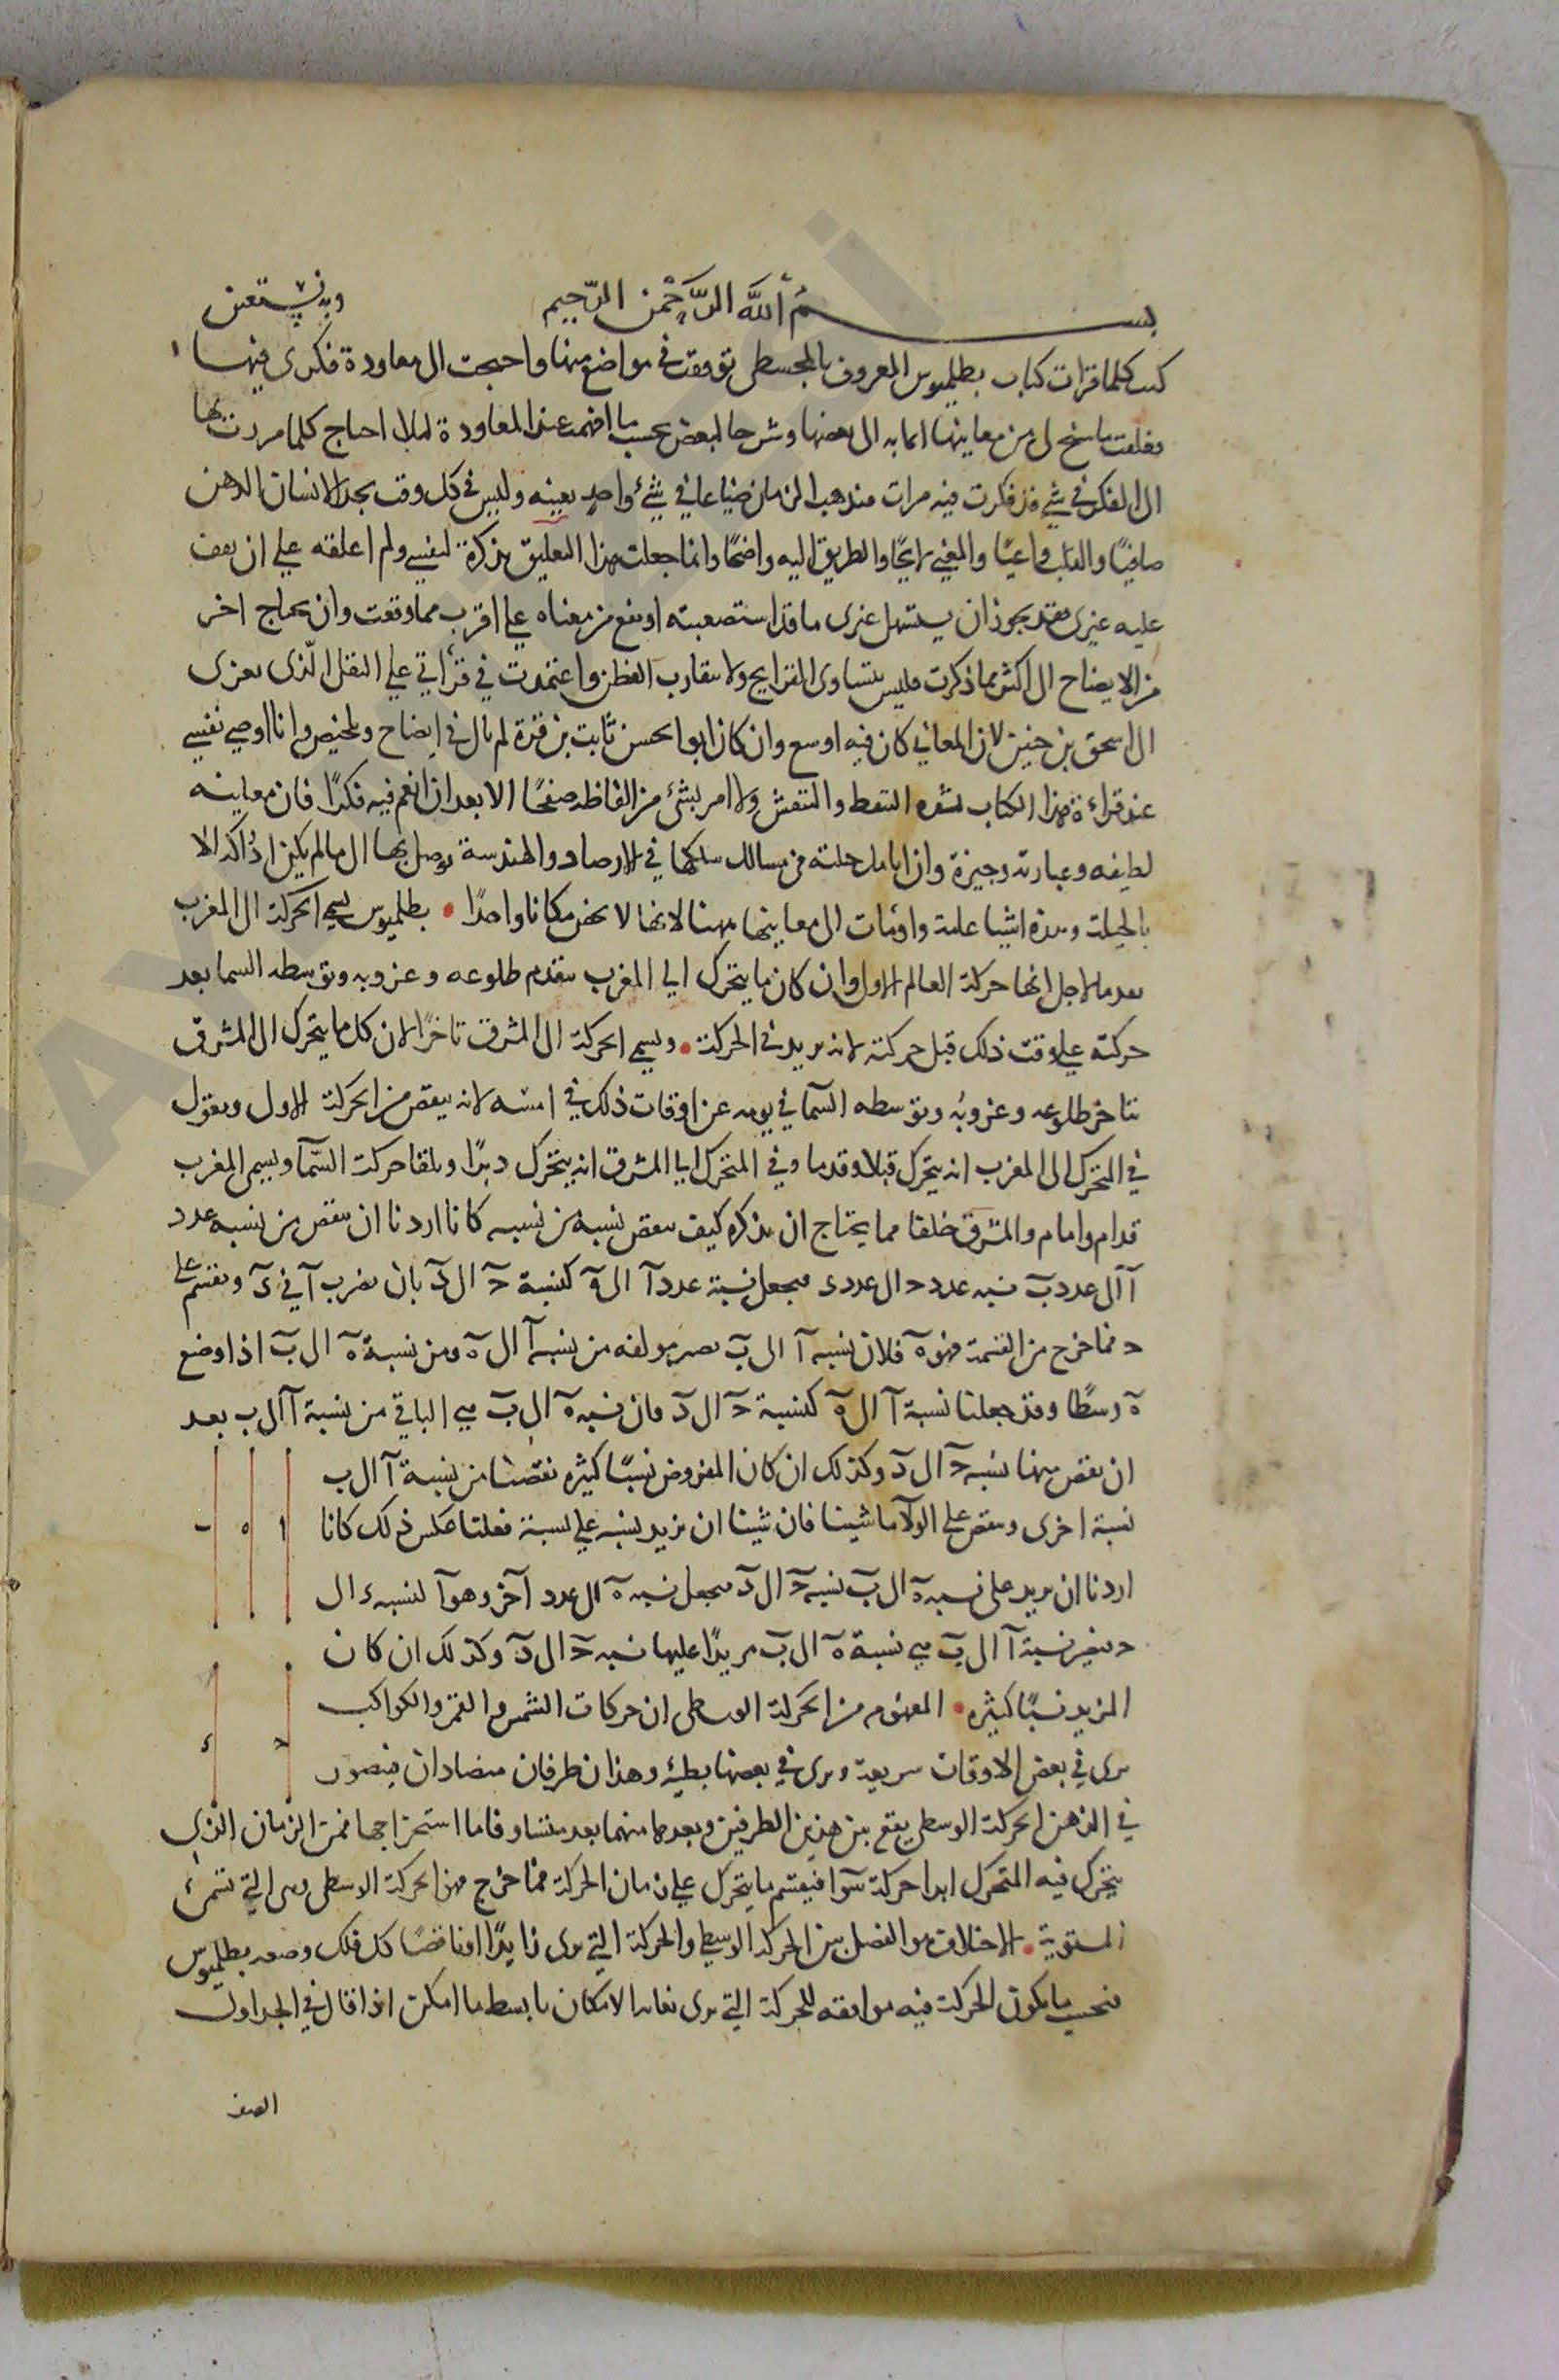 بسم الله الرحمن الرحيم وبه نستعين
كنت كلما قرات كتاب بطلميوس المعروف بالمجسطى توقفت في مواضع منها واحتجت الى معاودة فكرى فيها
فعلقت ما سنح لى من معاينها اما به الى بعضها وشرحا لبعض بحسب ما افهمه عند المعاودة ليلا احتاج كلما مررت بها
الى الفكر في شيء قد فكرت فيه مرات فيذهب الزمان ضياعا في شئ واحد بعينه وليس في كل وقت يجد الانسان الذهن
صافيا والقلب واعيا والمعنى رايجا والطريق اليه واضحا وانما جعلت هذا التعليق تذكرة لنفسي ولم اعلقه على ان يقف
عليه غيرى فقد يجوز ان يستسهل غيرى ما قد استصعبته او يقع من معناه على اقرب مما وقعت وان يحتاج اخر
من الايضاح الى اكثر مما ذكرت فليس تتساوى القرايح ولا تتقارب الفطن واعتمدت في قرأتي على النقل الذى يعزى
الى اسحق بن حنين لان المعاني كان فيه اوسع وان كان ابو الحسن ثابت بن قرة لم يال في ايضاح وتلخيص وانا اوصي نفسي
عند قراءة هذا الكتاب التيقظ والتفتش ولا امر بشئ من الفاظه صفحا الا بعد ان انعم فيه فكرا فان معاينه
لطيفه وعبارته وجيزة وان اتامل حلته في مسالك سلكها في الارصاد والهندسة توصل بها الى ما لم يكن ادراكه الا
بالحيلة وهذه اشيا علمة واومات الى معاينها مهنا لانها لا تخص مكانا واحدا • بطلميوس يسمي الحركة الى المغرب
تقدما لاجل انها حركة العالم الاولى وان كان ما يتحرك الى المغرب يتقدم طلوعه وغروبه وتوسطه السما بعد
حركته على وقت ذلك قبل حركته لانه يزيد في الحركة • ويسمي الحركة الى المشرق تاخرا لان كل ما يتحرك الى المشرق
يتاخر طلوعه وغروبه وتوسطه السما في يومه عن اوقات ذلك في امسه لانه ينقص من الحركة الاولى ويقول
في المتحرك الى المغرب انه يتحرك قبلا وقدما وفي المتحرك الى المشرق انه يتحرك دبرا وتلقا حركة السما ويسمى المغرب
قدام وامام والمشرق خلفا مما يحتاج ان نذكره كيف ننقص نسبة من نسبه كانا اردنا ان ننقص من نسبه عدد
آ الى عدد ب نسبه عدد ح الى عدد د فنجعل نسبة عدد آ الى ه كنسبة ح الى د بان نضرب آ في د ونقسم على
ح فما خرج من القسمة فهو ه فلان نسبه آ الى ب تصير مولفه من نسبه آ الى ه ومن نسبة ه الى ب اذا وضع
ه وسطا وقد جعلنا نسبة آ الى ه كنسبة ح الى د فان نسبه ه الى ب هي الباقي من نسبة آ الى ب بعد
ان نقص منها نسبه ح الى د وكذلك ان كان المفروض نسبا كثيره نقصنا من نسبة آ الى ب
نسبة اخرى وننقص على الولآ ما شينا فان شينا ان نزيد نسبه على نسبة فعلنا عكس ذلك كانا
اردنا ان نزيد على نسبه ه الى ب نسبه ح الى د فنجعل نسبه ه الى عدد آخر وهو آ كنسبه د الى
ح فتصير نسبة آ الى ب هي نسبة ه الى ب مزيدا عليها نسبه ح الى د وكذلك ان كان
المزيد نسبا كثيره • المفهوم من الحركة الوسطى ان حركات الشمس والقمر والكواكب
ترى في بعض الاوقات سريعة وترى في بعضها بطيئه وهذان طرفان متضادان فيتصور
في الذهن الحركة الوسطى يقع بين هذين الطرفين وبعدها منهما بعد متساو فاما استخراجها فمن الزمان الذي
يتحرك فيه المتحرك ابدا حركة سوا فيقسم ما يتحرك على زمان الحركة فما خرج فهو الحركة الوسطى وهى التي تسمى
المستوية • الاختلاف هو الفضل بين الحركة الوسطى والحركة التي ترى زايدا او ناقصا كل فلك وصفه بطلميوس
فبحسب ما يكون الحركة فيه موافقه للحركة التي ترى بغاية الامكان بابسط ما امكن اذا قال في الجداول
الصف
ا ه ب
ح د